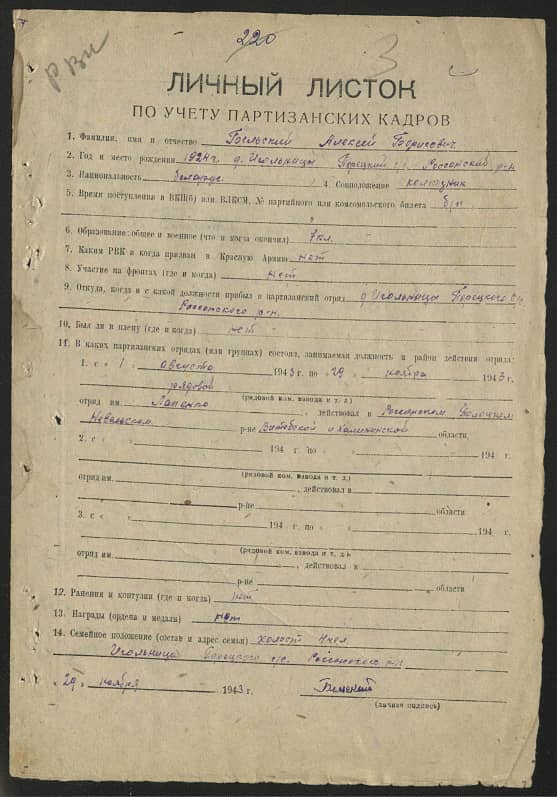 220
3
РВК
ЛИЧНЫЙ ЛИСТОК
ПО УЧЕТУ ПАРТИЗАНСКИХ КАДРОВ
1. Фамилия, имя и отчество Алексей Борисович
2. Год и место рождения 1924 г. д. Игольницы с/с Россонский р-н
3. Национальность белорус 4. Соцположение колхозник
5. Время поступления в ВКП(б) или ВЛКСМ, № партийного или комсомольского билета б/п
6. Образование: общее и военное (что и когда окончил) 7 кл.
7. Каким РВК и когда призван в Красную Армию нет
8. Участие на фронтах (где и когда) нет
9. Откуда, когда и с какой должности прибыл в партизанский отряд д. Игольница с/с,
Россонского р-н.
10. Был ли в плену (где и когда) нет
11. В каких партизанских отрядах (или группах) состоял, занимаемая должность и район действия отряда:
1. с „ 1 „ августа 1943 г. по „ 29 „ ноября 1943 г.
рядовой
(рядовой ком. взвода и т. д.)
отряд им. Лапенко, действовал в Россонском
Невельском р-не Витебской и Калининской области
2. с „ „ 194 г. по „ „ 194 г.
(рядовой ком. взвода и т. д.)
отряд им. , действовал в
р-не области
3. с „ „ 194 г. по „ „ 194 г.
(рядовой ком. взвода и т. д.)
отряд им. , действовал в
р-не области
12. Ранения и контузии (где и когда) нет
13. Награды (ордена и медали) нет
14. Семейное положение (состав и адрес семьи) холост 4 чел.
Игольница с/с. Россонского р-н
„ 29 „ ноября 1943 г.
(личная подпись)